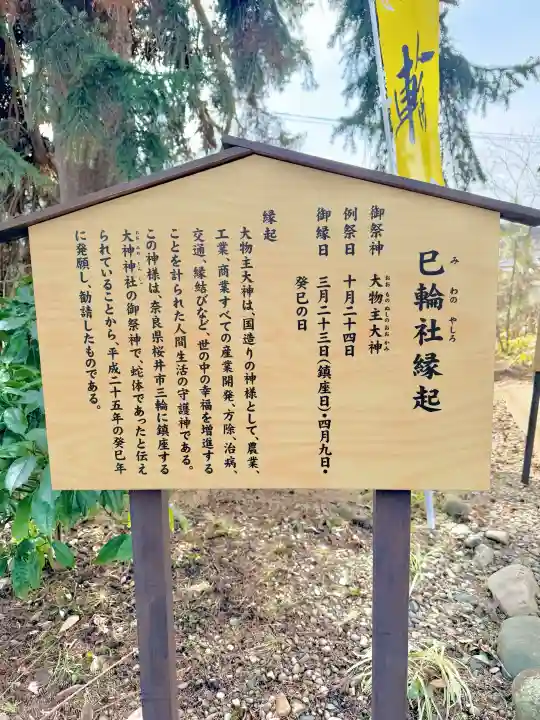 巳輪社縁起
み わの やしろ
御祭神 大物主大神
おお もの ぬしの おお かみ
例祭日 十月二十四日
御縁日 三月二十三日(鎮座日)・四月九日・
癸巳の日
縁起
大物主大神は、国造りの神様として、農業、
工業、商業すべての産業開発、方除、治病、
交通、縁結びなど、世の中の幸福を増進する
ことを計られた人間生活の守護神である。
この神様は、奈良県桜井市三輪に鎮座する
大神神社の御祭神で、蛇体であったと伝え
られていることから、平成二十五年の癸巳年
に発願し、勧請したものである。